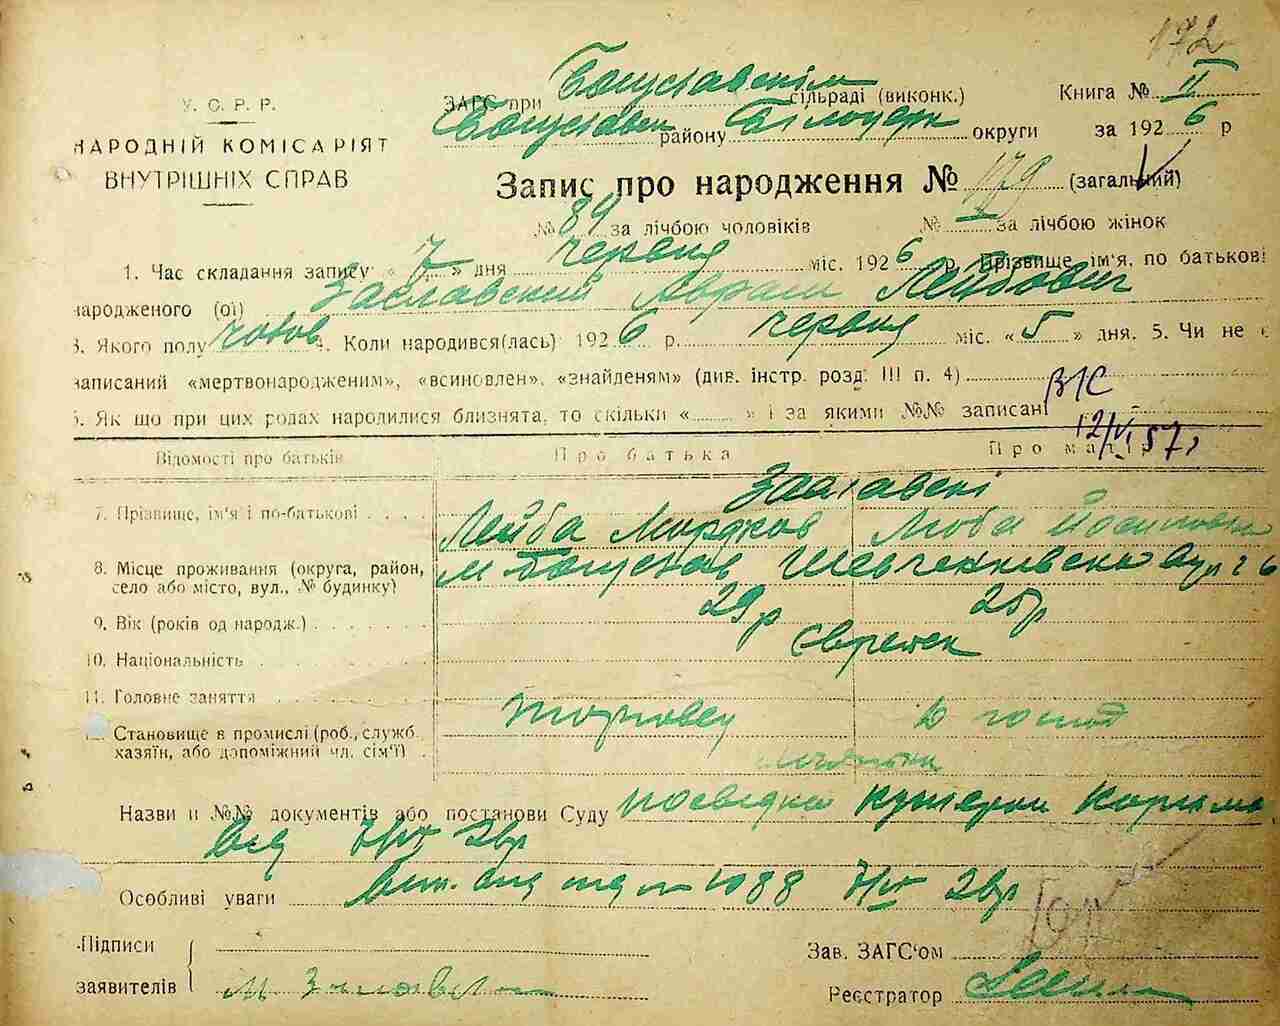 172
У. С. Р. Р.
НАРОДНІЙ КОМІСАРІЯТ
ВНУТРІШНІХ СПРАВ
ЗАГС при Богуславскім сільраді (виконк.) Книга № II
Богуславськ району Білоцерк округи за 1926 р
Запис про народження № 179 (загальний)
№ 89 за лічбою чоловіків № за лічбою жінок
1. Час складання запису « 7 » дня червня міс. 1926 р. Прізвище ім'я, по батькові
народженого (ої) Заславский Абрам Лейбович
3. Якого полу чолов 4. Коли народився(лась) 1926 р. червня міс. « 5 » дня. 5. Чи не є
записаний «мертвонародженим», «всиновлен», «знайденям» (див. інстр. розд. III п. 4)
6. Як що при цих родах народилися близнята, то скільки « » і за якими №№ записані
12/VI 57
Відомості про батьків Про батька Про матір
Заславскі
7. Прізвище, ім'я і по-батькові Лейба Мордков Люба Йосиповна
8. Місце проживання (округа, район, село або місто, вул., № будинку) м Богуслав Шевченківська вул 26
9. Вік (років од народж.) 29 р 25 р
10. Національність Єврейск
11. Головне заняття торговец
Становище в промислі (роб., служб. хазяїн, або допоміжний чл. сім'ї)
Назви и №№ документів або постанови Суду посвідка
від 7/VI 26р
Особливі уваги 1088 7/VI 26р
Підписи
заявителів М Заславск
Зав. ЗАГС'ом
Реєстратор